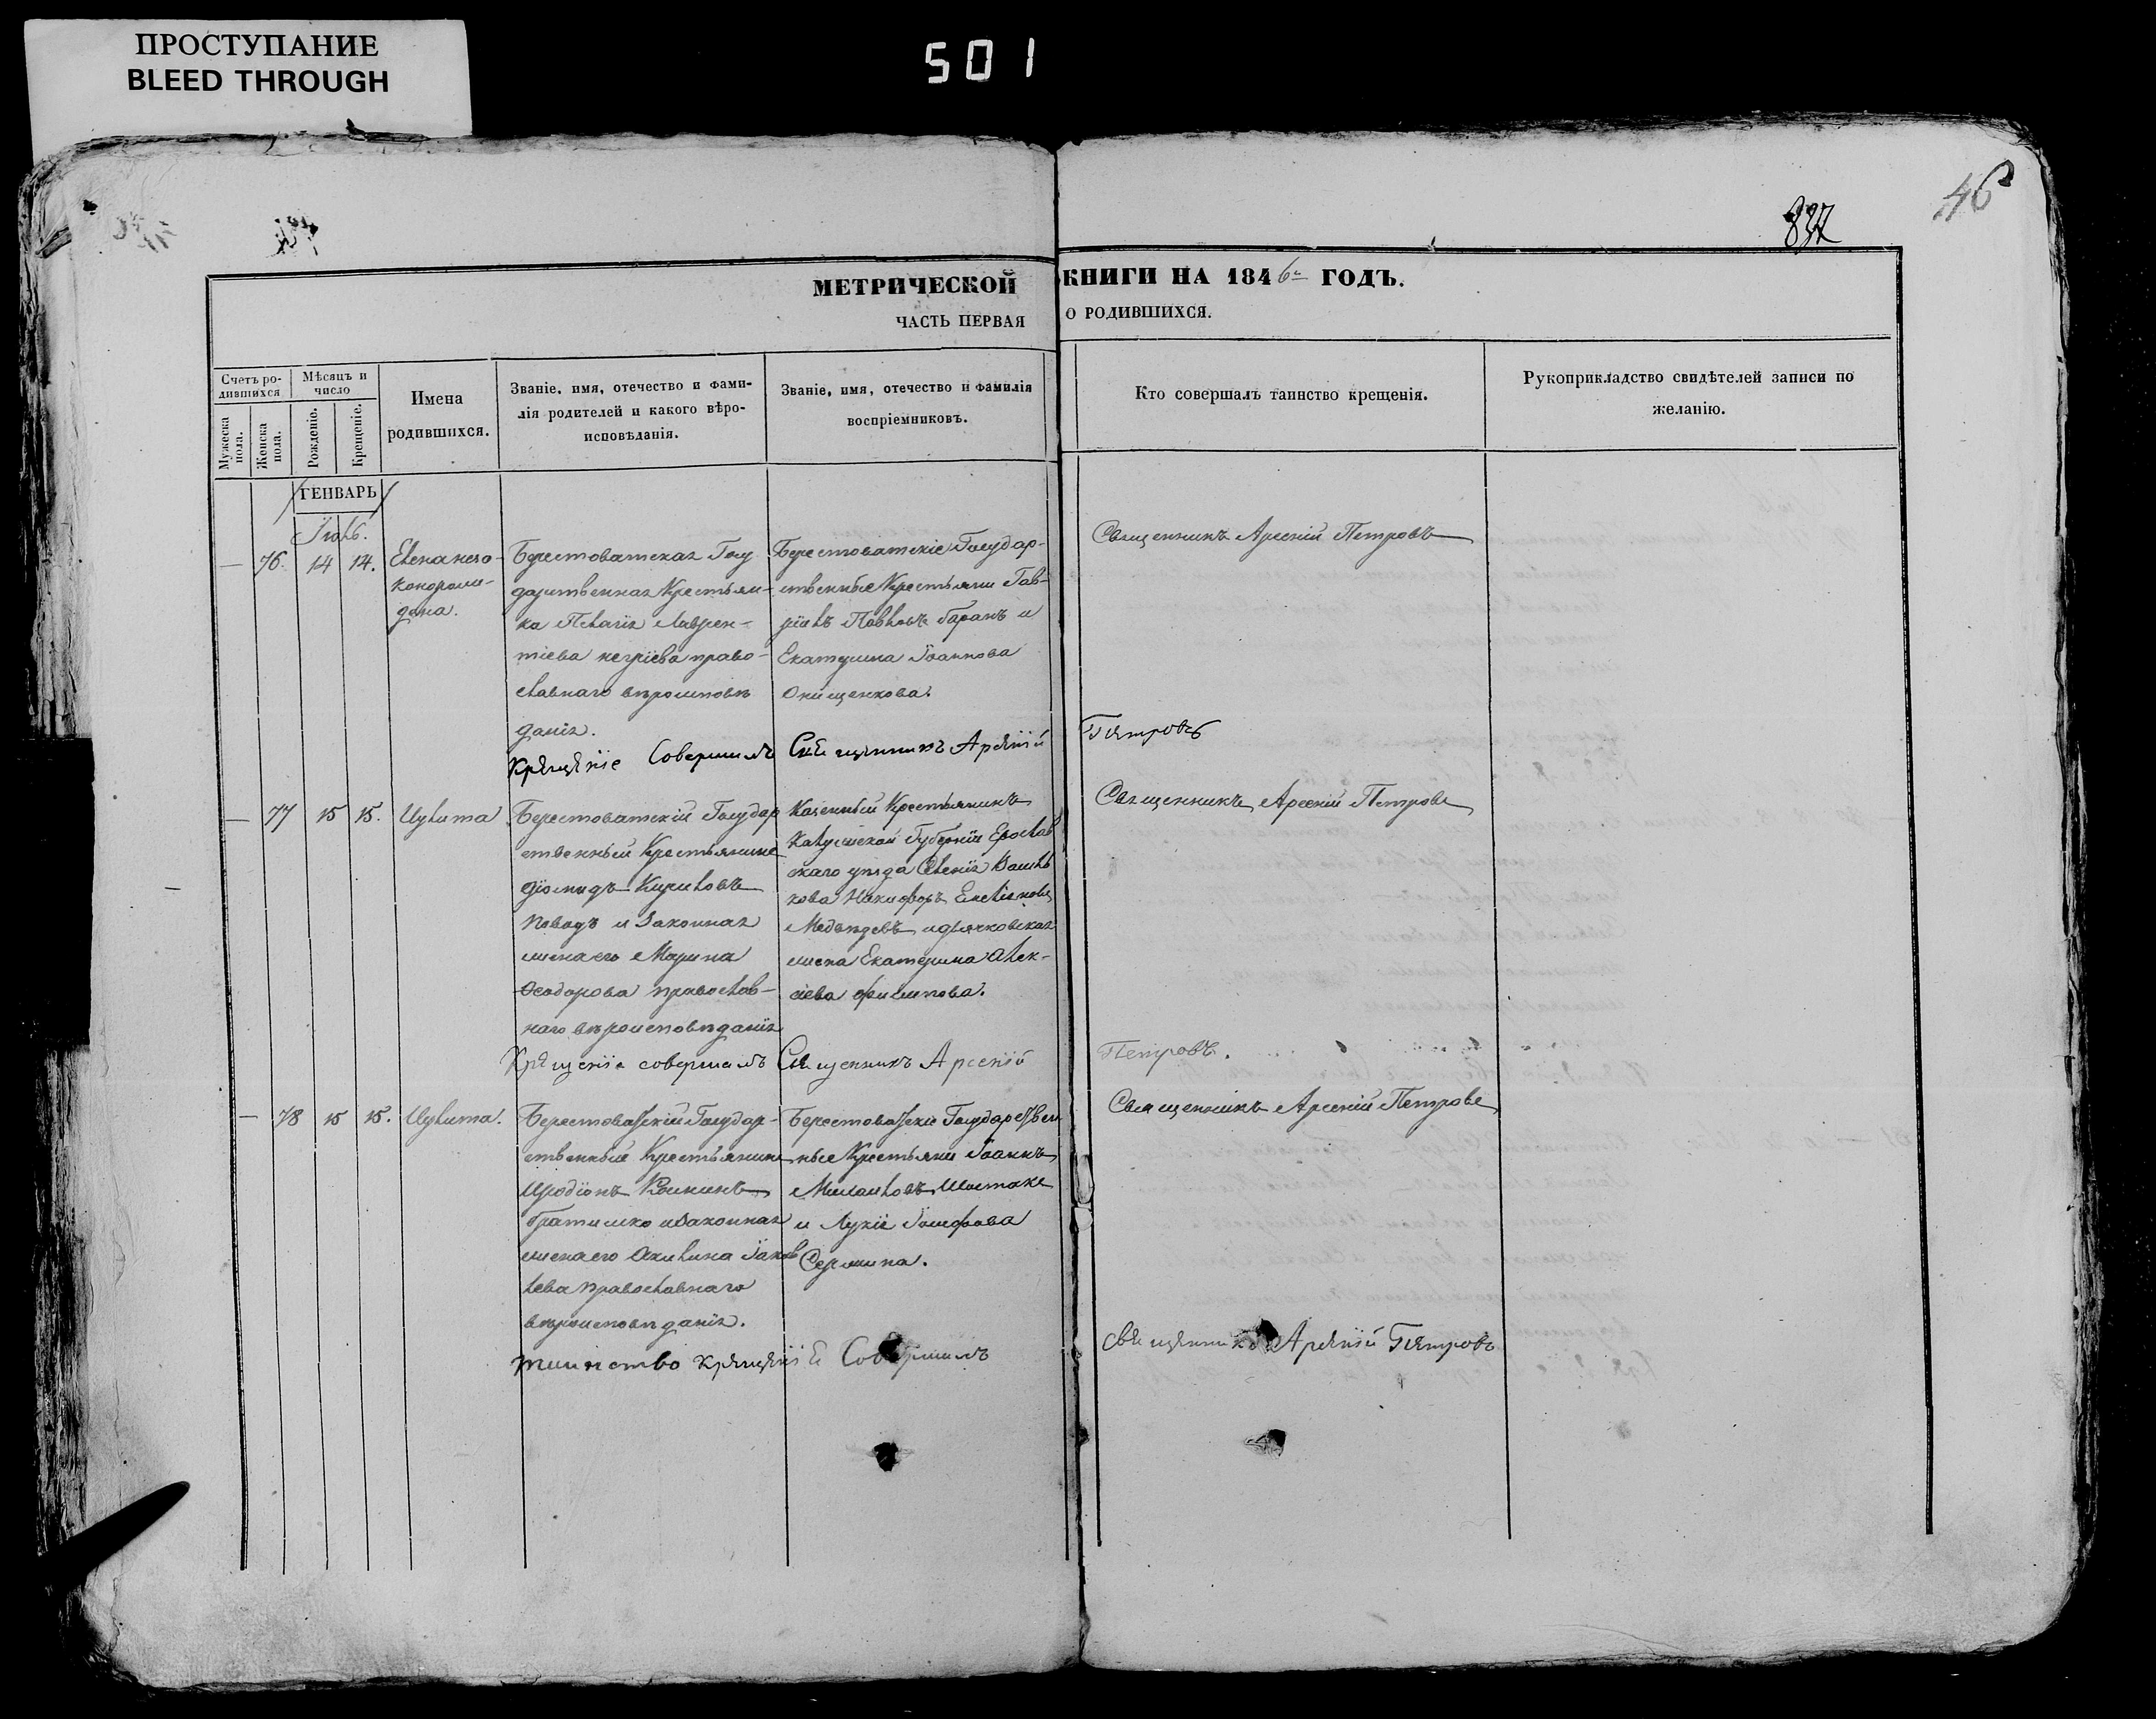 ПРОСТУПАНИЕ
BLEED THROUGH
501
46
837
МЕТРИЧЕСКОЙ КНИГИ НА 1846й ГОДЪ.
ЧАСТЬ ПЕРВАЯ О РОДИВШИХСЯ.
Счетъ ро-
дившихся
Мужеска пола.
Женска пола.
Мѣсяцъ и
число
Рожденіе.
Крещеніе.
Имена
родившихся.
Званіе, имя, отечество и фами-
лія родителей и какого вѣро-
исповѣданія.
Званіе, имя, отечество и фамилія
воспріемниковъ.
Кто совершалъ таинство крещенія.
Рукоприкладство свидѣтелей записи по
желанію.
ГЕНВАРЬ
Іюль.
— 76. 14 14.
Елена незо-
конорож-
дена.
Берестоватская Госу
дарственная Крестьян-
ка Пелагія Лаврен-
тіева православнаго вѣроисповѣ
данія.
Берестоватскіе Государ-
ственные Крестьяни Гав-
ріилъ Павловъ Баранъ и
Екатерина Іоаннова
Онищенкова.
Священникъ Арсеній Петровъ
Крещеніе Совершилъ Священникъ Арсеній Петровъ
— 77 15 15. Иулита
Берестоватскій Государ
ственный Крестьянинъ
Діомидъ Кириловъ
Новадъ и Законная
жена его Марина
Ѳеодорова православ-
наго вѣроисповѣданія
Казенный Крестьянинъ
Калужской Губерніи
скаго уѣзда Селенія
Никифоръ
Медведевъ и дьячковская
жена Екатерина Алек-
сіева Филипова.
Священникъ Арсеній Петровъ
Крещеніе совершилъ Священникъ Арсеній Петровъ.
— 78 15 15. Иулита.
Берестоватскій Государ-
ственный Крестьянинъ
Иродіонъ
Братишко и Законная
жена его Акилина Іаков
лева православнаго
вѣроисповѣданія.
Берестоватскіе Государствен
ные Крестьяни Іоаннъ
Михаиловъ Шостакъ
и Лукія Іосифова
Серошина.
Священникъ Арсеній Петровъ
таинство крещеніе Совершилъ священникъ Арсеній Петровъ